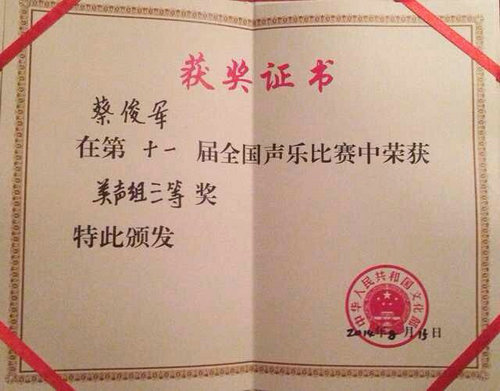 获奖证书
蔡俊军
在第十一届全国声乐比赛中荣获
美声组三等奖
特此颁发
中华人民共和国文化部
2014年8月15日